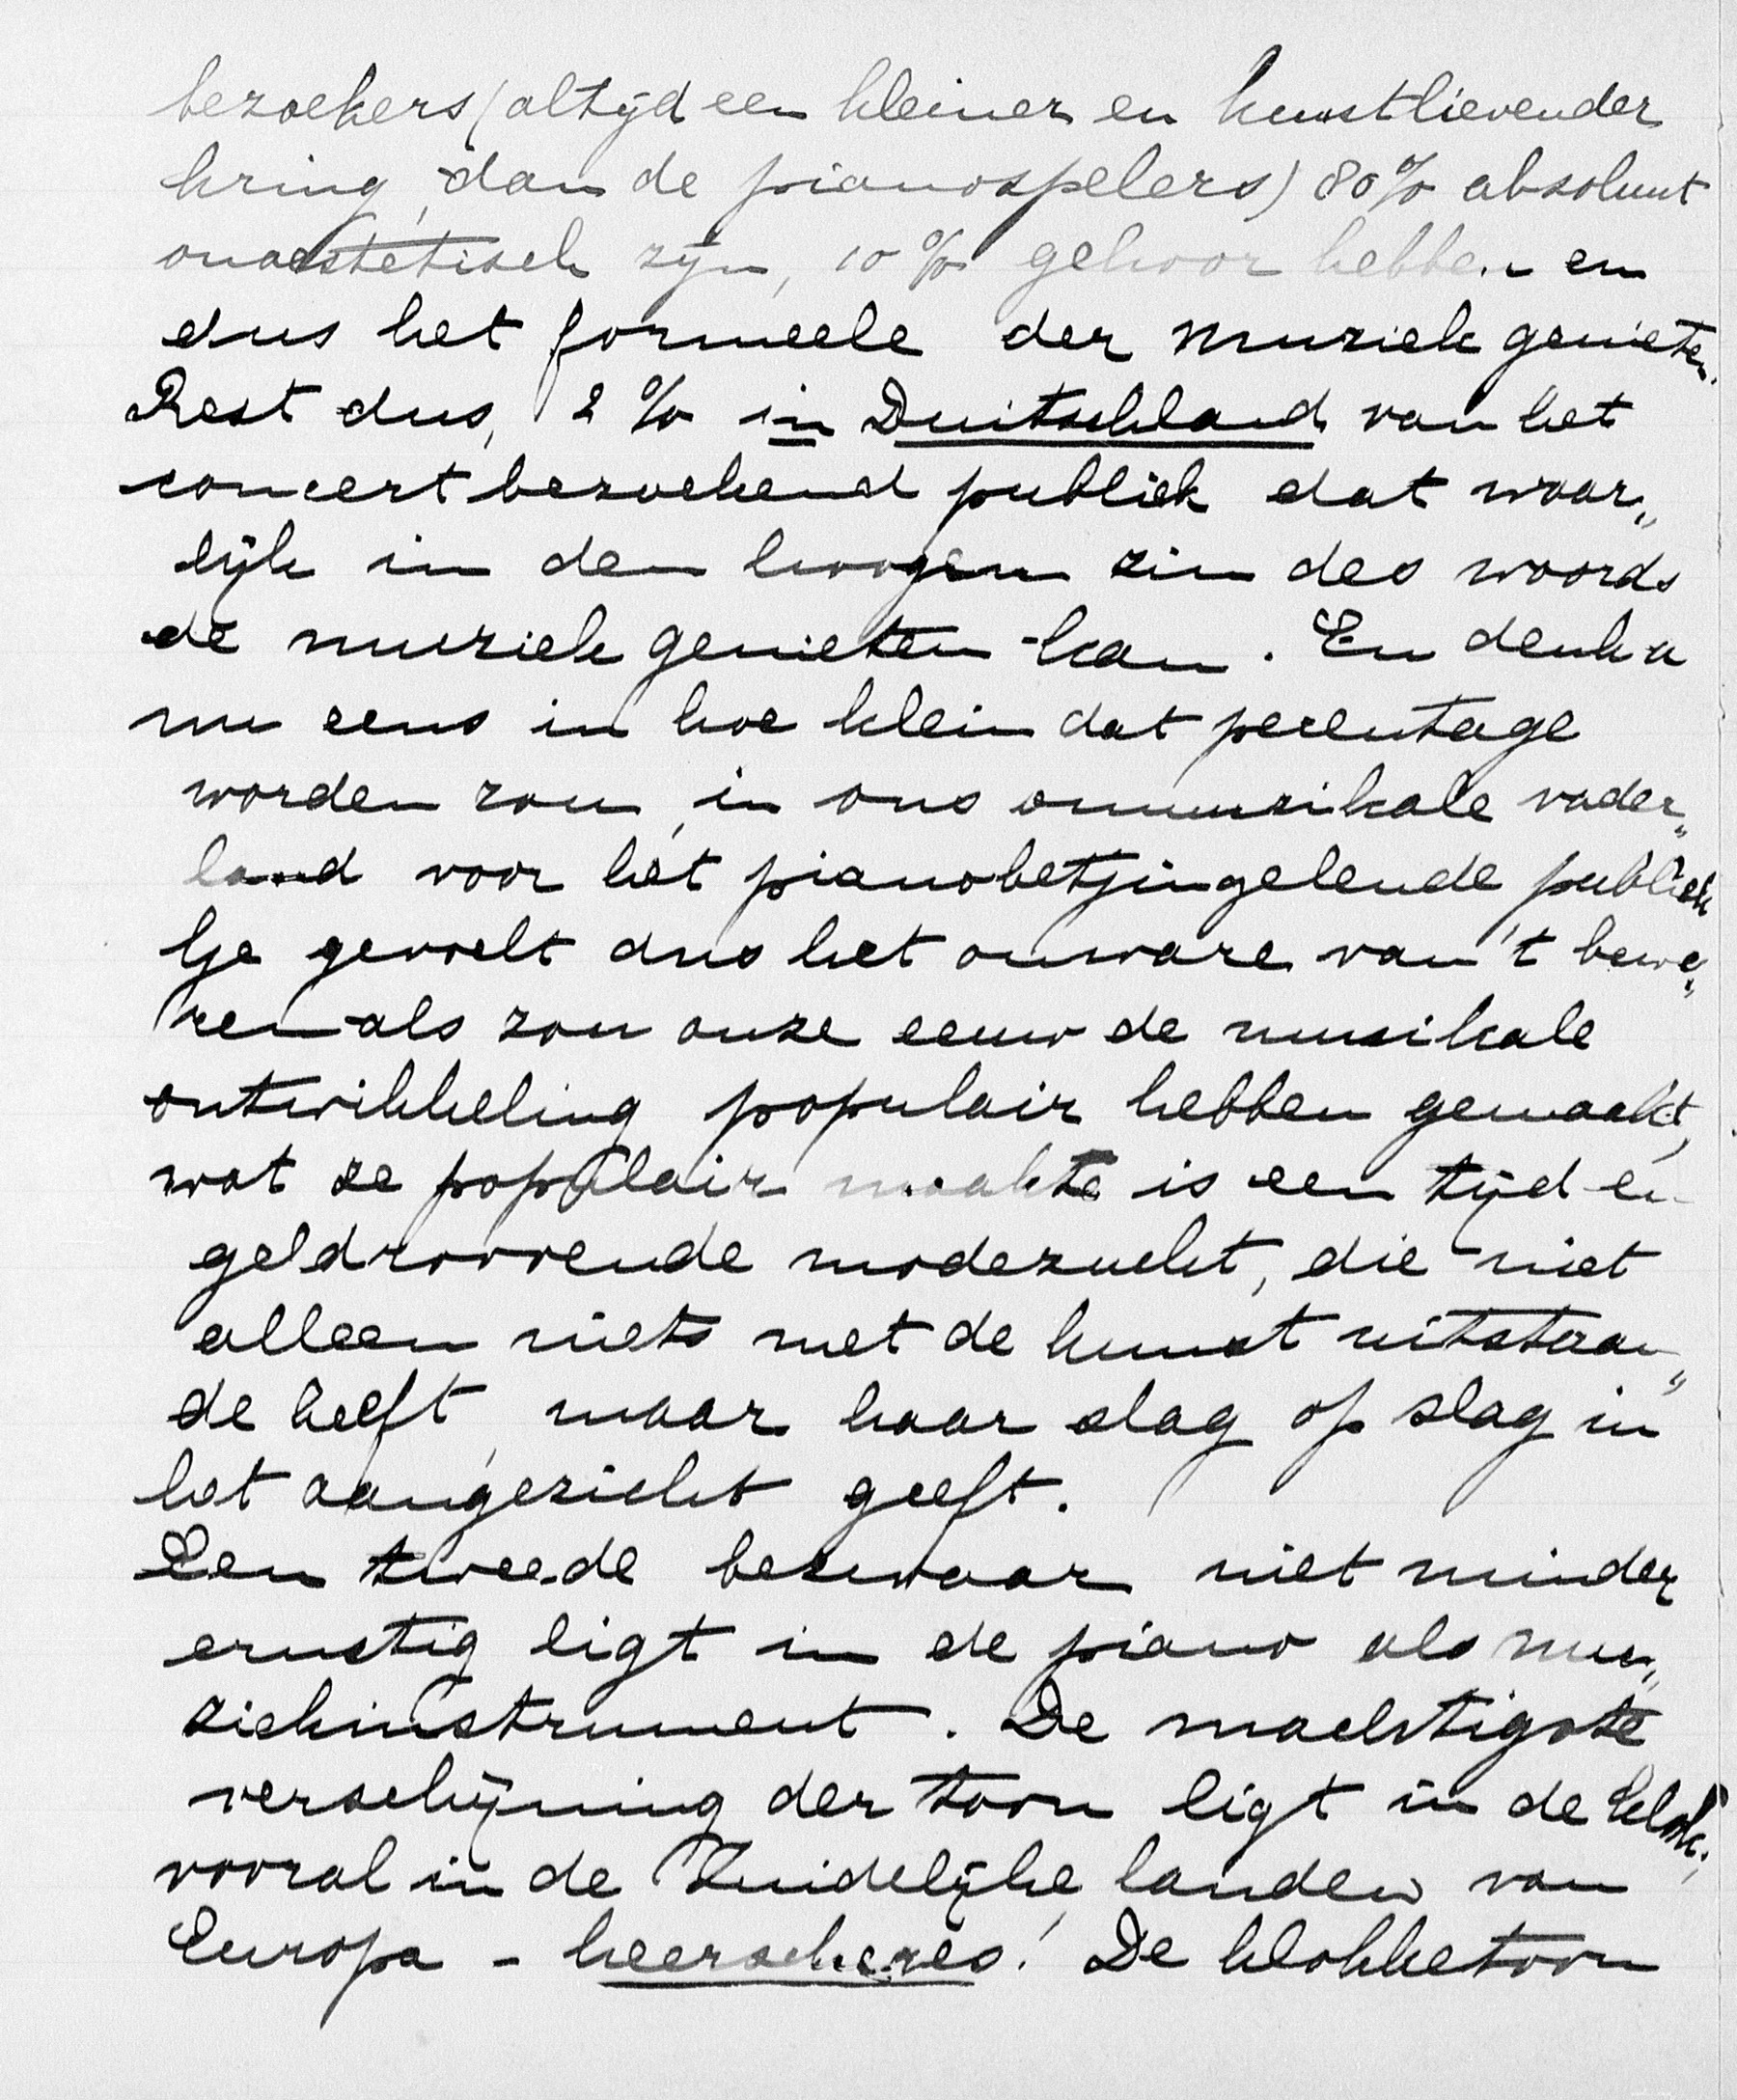 bezoekers (altijd een kleiner en kunstlievender
kring, dan de pianospelers) 80% absoluut
onaestetisch zijn, 10% gehoor hebben en
dus het formeele der muziek genieten.
Rest dus, 2% in Duitschland van het
concertbezoekend publiek dat waar„
lijk in den hoogen zin des woords
de muziek genieten kan. En denk u
nu eens in hoe klein dat percentage
worden zou, in ons onmuzikale vader„
land voor het pianobetjingelende publiek
Ge gevoelt dus het onware van 't bewe„
ren als zou onze eeuw de muzikale
ontwikkeling populair hebben gemaakt,
wat ze populair maakte is een tijd en
geldroovende modezucht, die niet
alleen niets met de kunst uitstaan„
de heeft, maar haar slag op slag in
het aangezicht geeft.
Een tweede bezwaar niet minder
ernstig ligt in de piano als mu„
ziekinstrument. De machtigste
verschijning der toon ligt in de klok,
vooral in de Zuidelijke landen van
Europa - heerscheres! De klokketoon